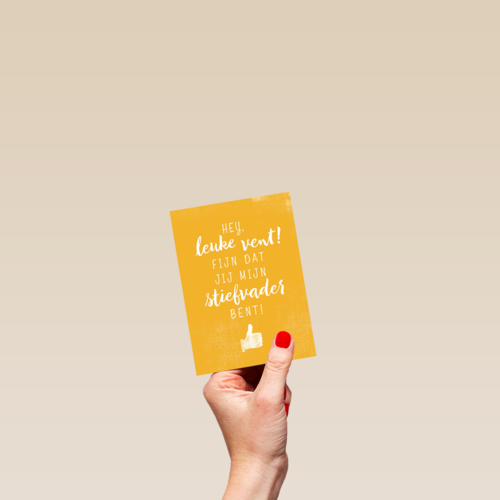 HEY,
leuke vent!
FIJN DAT
JIJ MIJN
stiefvader
BENT!